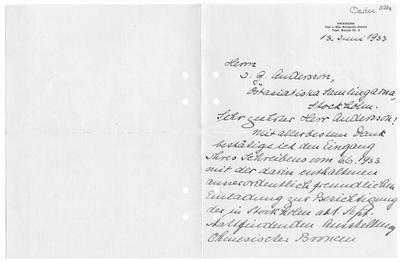 Oeder
13. Juni 1933
Herrn
J. G. Andersson,
Östasiatiska Samlingarna,
Stockholm.
Sehr geehrter Herr Andersson!
Mit allerbestem Dank
bestätige ich den Eingang
Ihres Schreibens vom 6.6.1933
mit der darin enthaltenen
ausserordentlich freundlichen
Einladung zur Besichtigung
der in Stockholm ab 1. Sept.
stattfindenden Ausstellung
Chinesischer Broncen